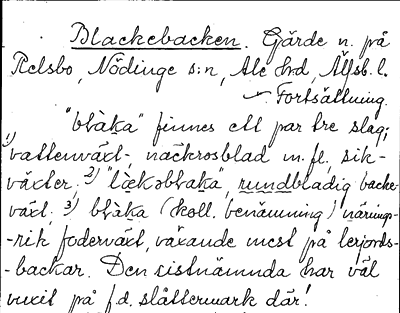 Blackebacken. Gärde n. på
Relsbo, Nödinge s:n, Ale hrd, Älfsb. l.
Fortsättning.
"blàka" finnes ett par tre slag;
1) vattenväxt-, näckrosblad m. fl, sik-
växter. 2) "lækoblaka", rundbladig backe-
växt. 3) blàka (koll. benämning) näring-
-rik foderväxt, växande mest på lerjords-
-backar. Den sistnämnda har väl
vuxit på f.d. slåttermark där!